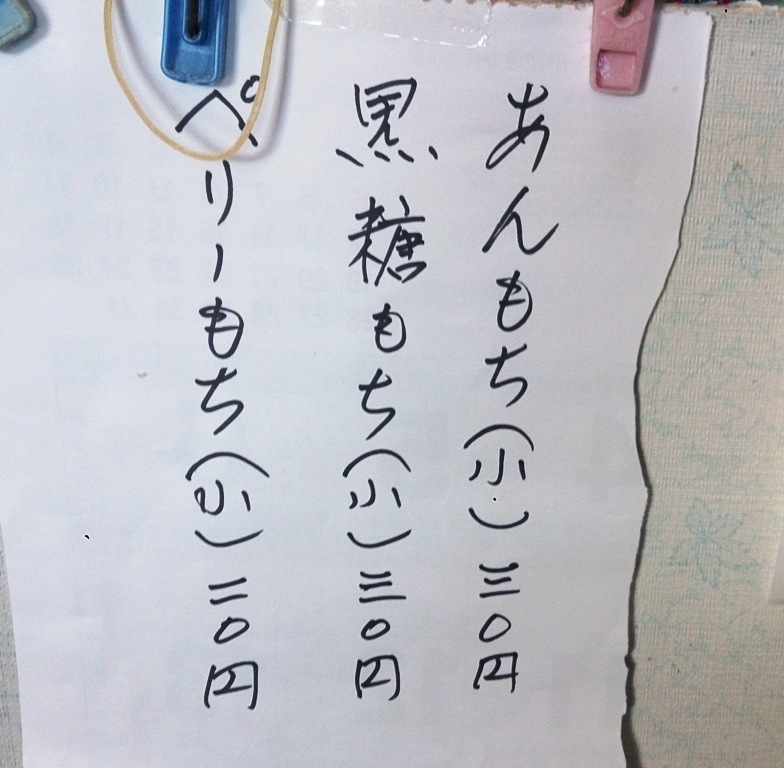 あんもち(小)三〇円
黒糖もち(小)三〇円
ペリーもち(小)二〇円